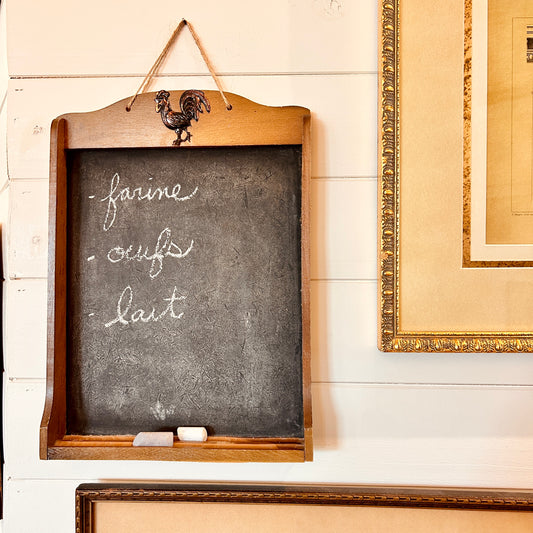 - farine
- oeufs
- lait